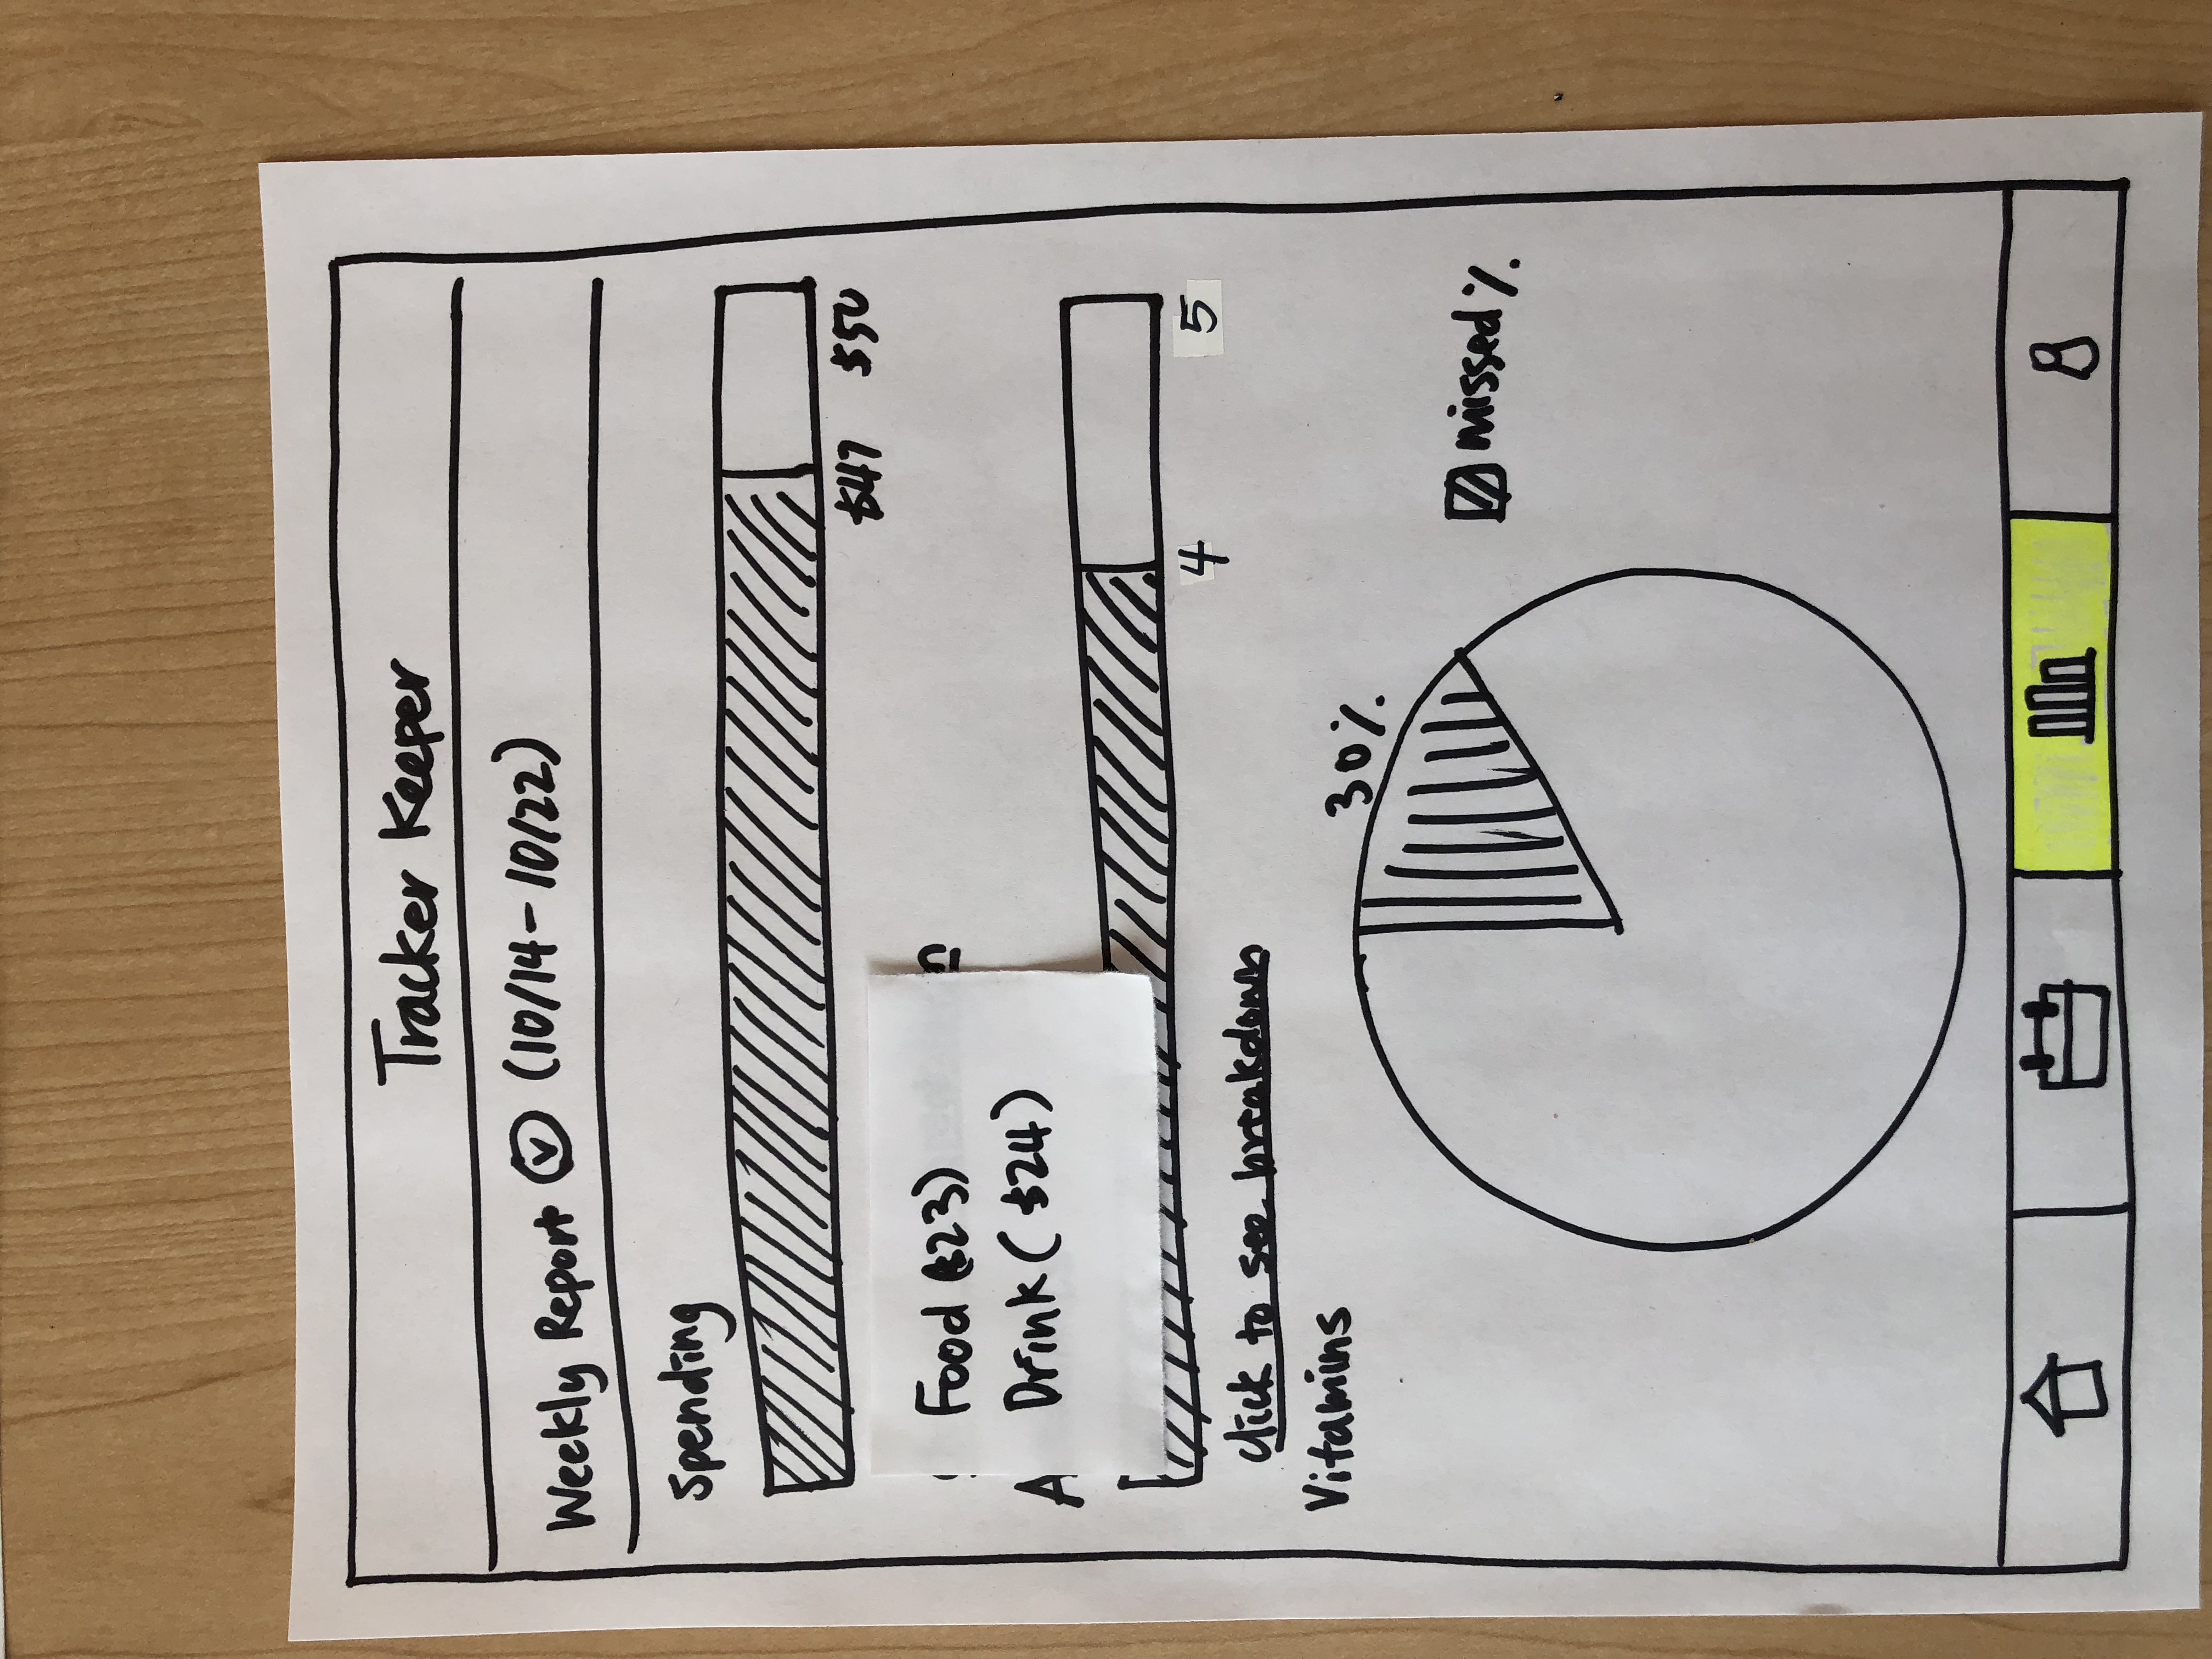 Tracker Keeper
Weekly Report (10/14 - 10/22)
Spending
$47 $50
Food ($23)
Drink ($24)
A
4 5
click to see breakdown
Vitamins
30%
missed %